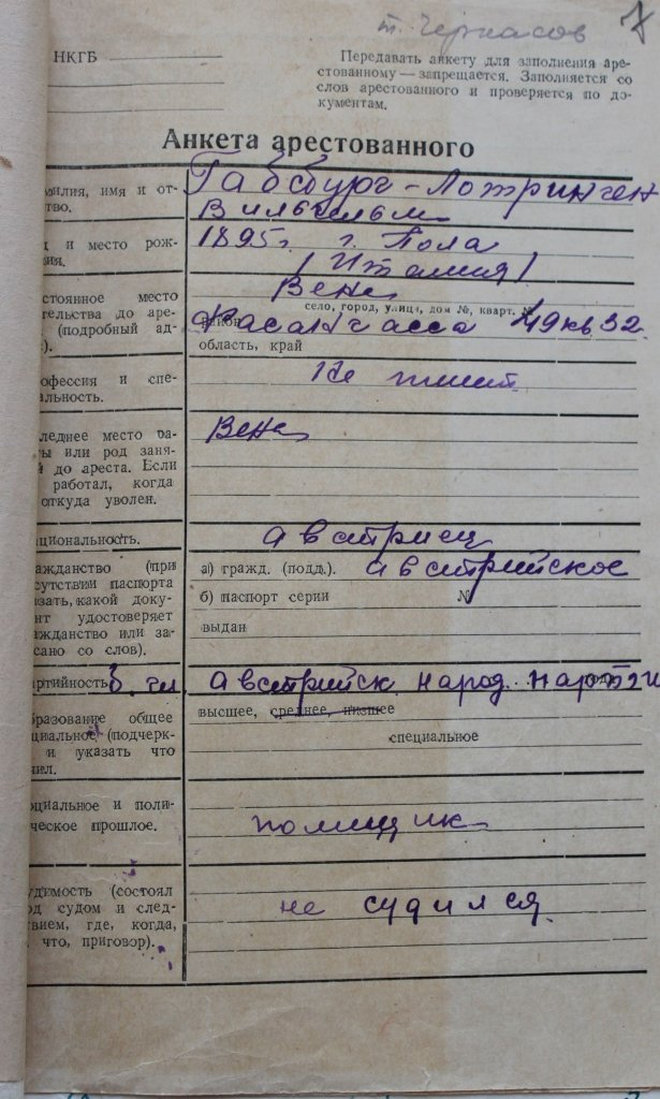 т. Черкасов
7
НКГБ
Передавать анкету для заполнения аре-
стованному — запрещается. Заполняется со
слов арестованного и проверяется по до-
кументам.
Анкета арестованного
милия, имя и от-
тво.
Габсбург-Лотринген
Вильгельм
д и место рож-
ия.
1895г. г. Пола
/Италия/
стоянное место
тельства до аре-
(подробный ад-
).
Вена
село, город, улица, дом №, кварт. №
Фасангасса 49 кв 32.
область, край
офессия и спе-
альность.
Не имеет
леднее место ра-
ы или род заня-
й до ареста. Если
работал, когда
откуда уволен.
Вена
циональность.
австриец
ажданство (при
сутствии паспорта
азать, какой доку-
нт удостоверяет
ажданство или за-
сано со слов).
а) гражд. (подд.). австрийское
б) паспорт серии №
выдан
артийность б. чл. австрийск. народ. партии
бразование общее
циальное (подчерк-
и указать что
чил.
высшее, среднее, низшее
специальное
оциальное и поли-
ческое прошлое.
помещик
удимость (состоял
од судом и след-
твием, где, когда,
что, приговор).
не судился